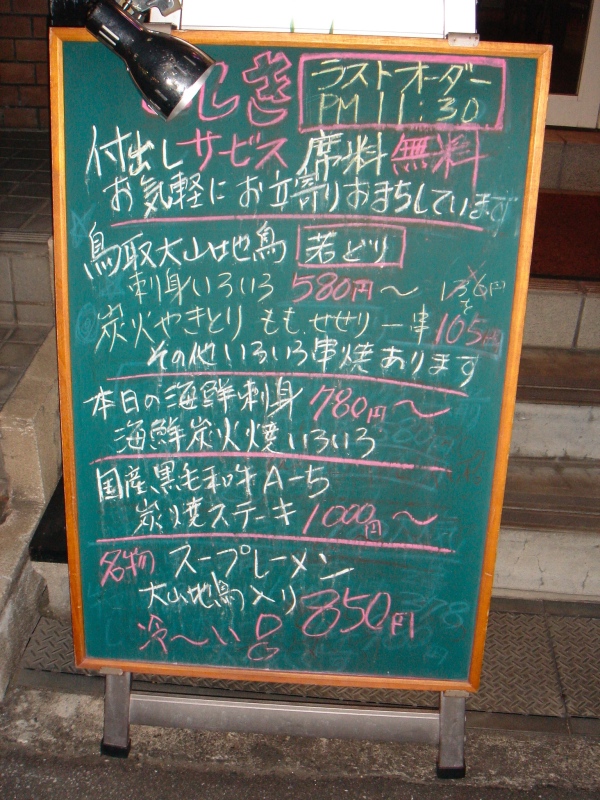 ラストオーダー
PM 11:30
付出しサービス 席料 無料
お気軽にお立寄りおまちしています
鳥取大山地鳥 若どり
刺身いろいろ 580円〜
炭火やきとり もも、せせり一串 105円
その他いろいろ串焼あります
本日の海鮮刺身 780円〜
海鮮炭火焼いろいろ
国産黒毛和牛A-5
炭焼ステーキ 1000円〜
名物 スープレーメン
大山地鳥入り 850円
冷〜い